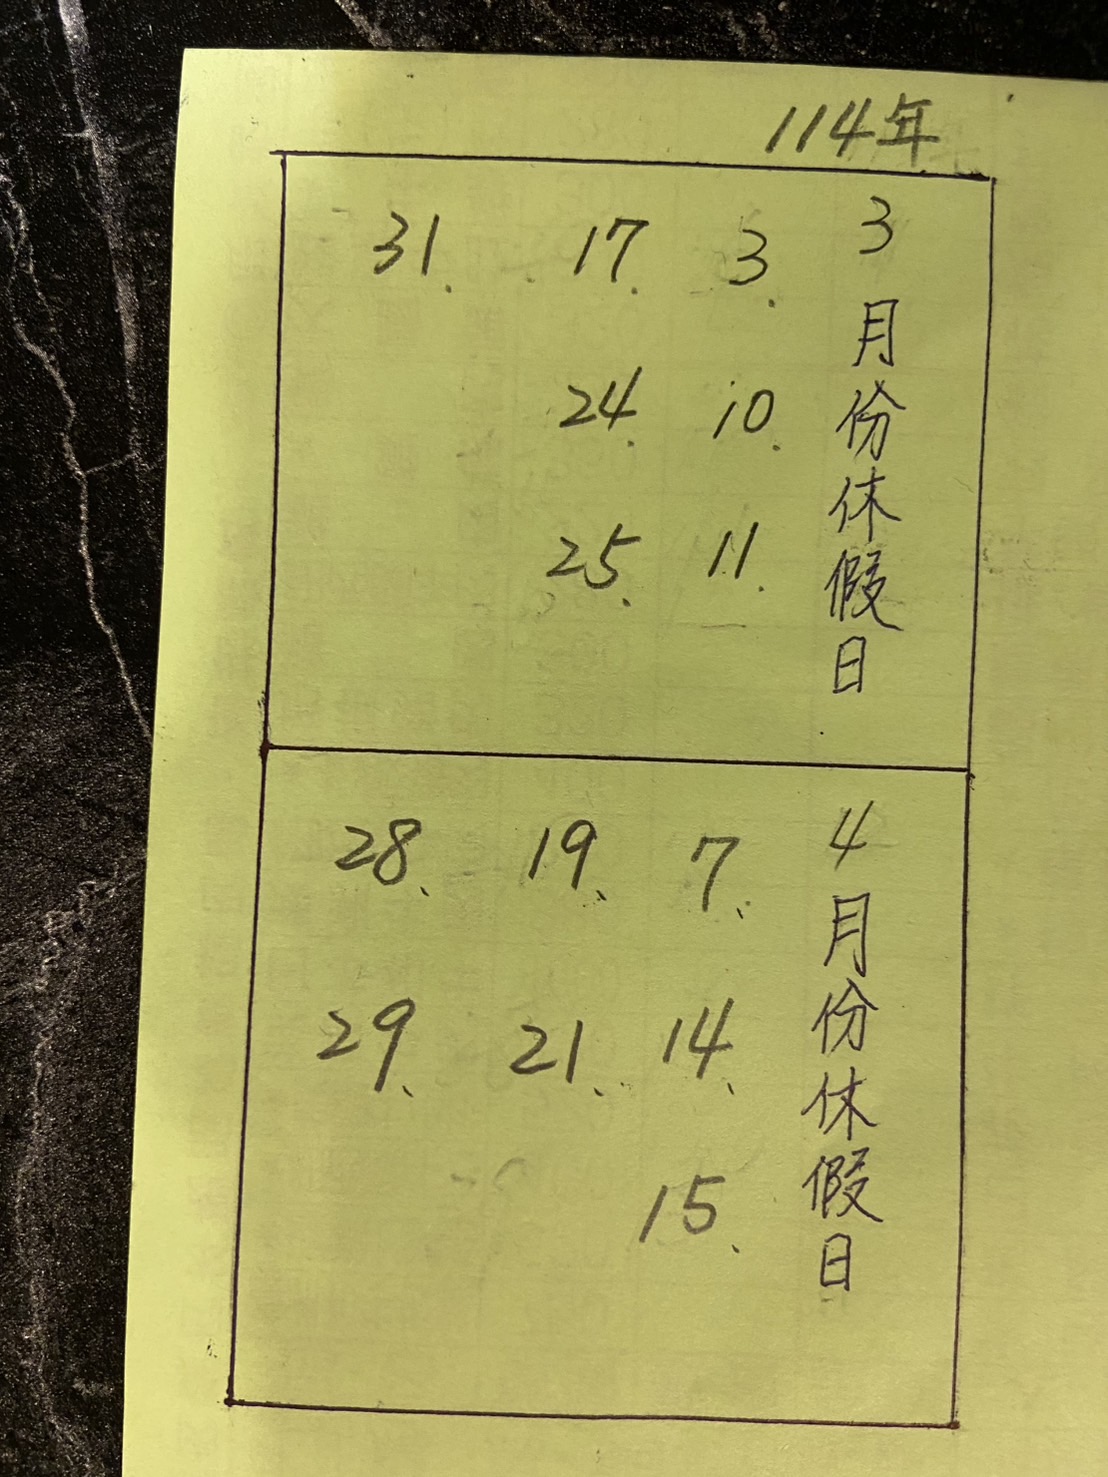 114年
3月份休假日
3.
10.
11.
17.
24.
25.
31.
4月份休假日
7、
14、
15、
19、
21、
28、
29、